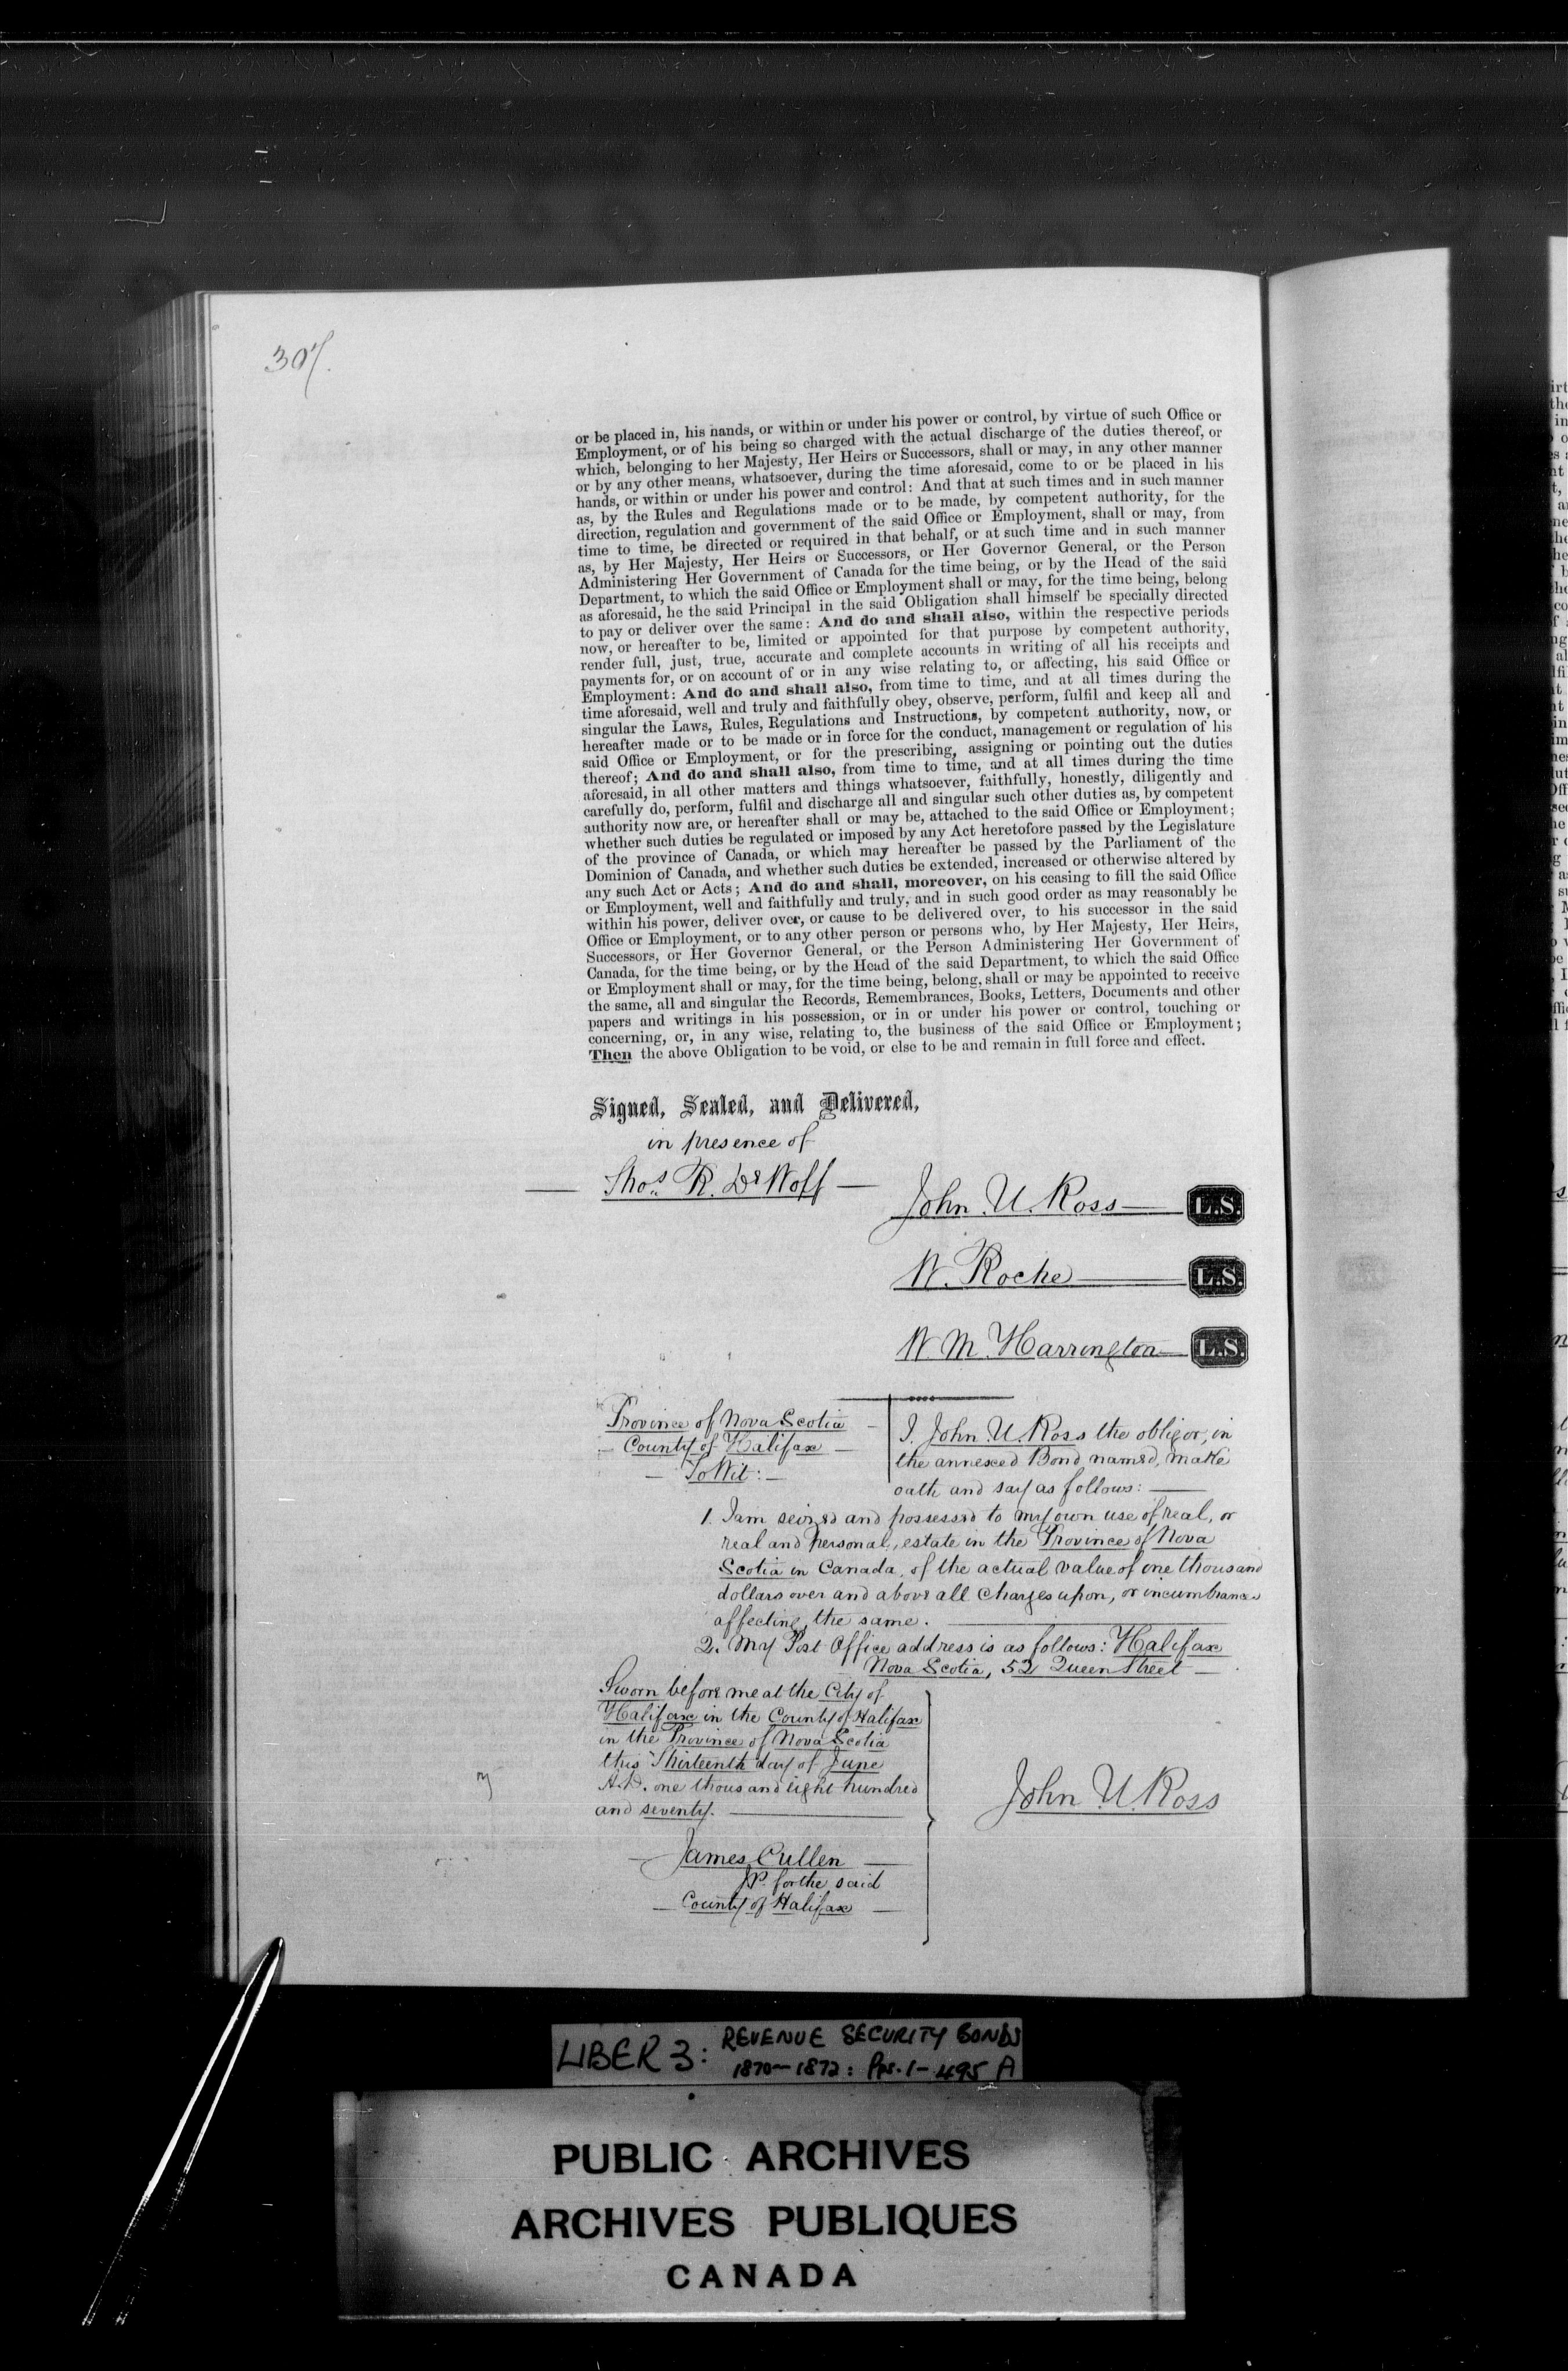 307.
or be placed in, his hands, or within or under his power or control, by virtue of such Office or
Employment, or of his being so charged with the actual discharge of the duties thereof, or
which, belonging to her Majesty, Her Heirs or Successors, shall or may, in any other manner
or by any other means, whatsoever, during the time aforesaid, come to or be placed in his
hands, or within or under his power and control: And that at such times and in such manner
as, by the Rules and Regulations made or to be made, by competent authority, for the
direction, regulation and government of the said Office or Employment, shall or may, from
time to time, be directed or required in that behalf, or at such time and in such manner
as, by Her Majesty, Her Heirs or Successors, or Her Governor General, or the Person
Administering Her Government of Canada for the time being, or by the Head of the said
Department, to which the said Office or Employment shall or may, for the time being, belong
as aforesaid, he the said Principal in the said Obligation shall himself be specially directed
to pay or deliver over the same: And do and shall also, within the respective periods
now, or hereafter to be, limited or appointed for that purpose by competent authority,
render full, just, true, accurate and complete accounts in writing of all his receipts and
payments for, or on account of or in any wise relating to, or affecting, his said Office or
Employment: And do and shall also, from time to time, and at all times during the
time aforesaid, well and truly and faithfully obey, observe, perform, fulfil and keep all and
singular the Laws, Rules, Regulations and Instructions, by competent authority, now, or
hereafter made or to be made or in force for the conduct, management or regulation of his
said Office or Employment, or for the prescribing, assigning or pointing out the duties
thereof; And do and shall also, from time to time, and at all times during the time
aforesaid, in all other matters and things whatsoever, faithfully, honestly, diligently and
carefully do, perform, fulfil and discharge all and singular such other duties as, by competent
authority now are, or hereafter shall or may be, attached to the said Office or Employment;
whether such duties be regulated or imposed by any Act heretofore passed by the Legislature
of the province of Canada, or which may hereafter be passed by the Parliament of the
Dominion of Canada, and whether such duties be extended, increased or otherwise altered by
any such Act or Acts; And do and shall, moreover, on his ceasing to fill the said Office
or Employment, well and faithfully and truly, and in such good order as may reasonably be
within his power, deliver over, or cause to be delivered over, to his successor in the said
Office or Employment, or to any other person or persons who, by Her Majesty, Her Heirs,
Successors, or Her Governor General, or the Person Administering Her Government of
Canada, for the time being, or by the Head of the said Department, to which the said Office
or Employment shall or may, for the time being, belong, shall or may be appointed to receive
the same, all and singular the Records, Remembrances, Books, Letters, Documents and other
papers and writings in his possession, or in or under his power or control, touching or
concerning, or, in any wise, relating to, the business of the said Office or Employment;
Then the above Obligation to be void, or else to be and remain in full force and effect.
Signed, Sealed, and Delivered,
in presence of
Thos. R. DeWolf
John U. Ross L.S.
W. Roche L.S.
W. M. Harrington L.S.
Province of Nova Scotia
County of Halifax
To Wit:
I. John U. Ross the obligor, in
the annexed Bond named, make
oath and say as follows:
1. I am seized and possessed to my own use of real, or
real and personal, estate in the Province of Nova
Scotia in Canada, of the actual value of one thousand
dollars over and above all charges upon, or incumbrances
affecting, the same.
2. My Post Office address is as follows: Halifax
Nova Scotia, 52 Queen Street
Sworn before me at the City of
Halifax in the County of Halifax
in the Province of Nova Scotia
this Thirteenth day of June
A.D. one thousand eight hundred
and seventy.
John U. Ross
James Cullen
J.P. for the said
County of Halifax
LIBER 3: REVENUE SECURITY BONDS
1870-1872: Pps. 1-495 A
PUBLIC ARCHIVES
ARCHIVES PUBLIQUES
CANADA